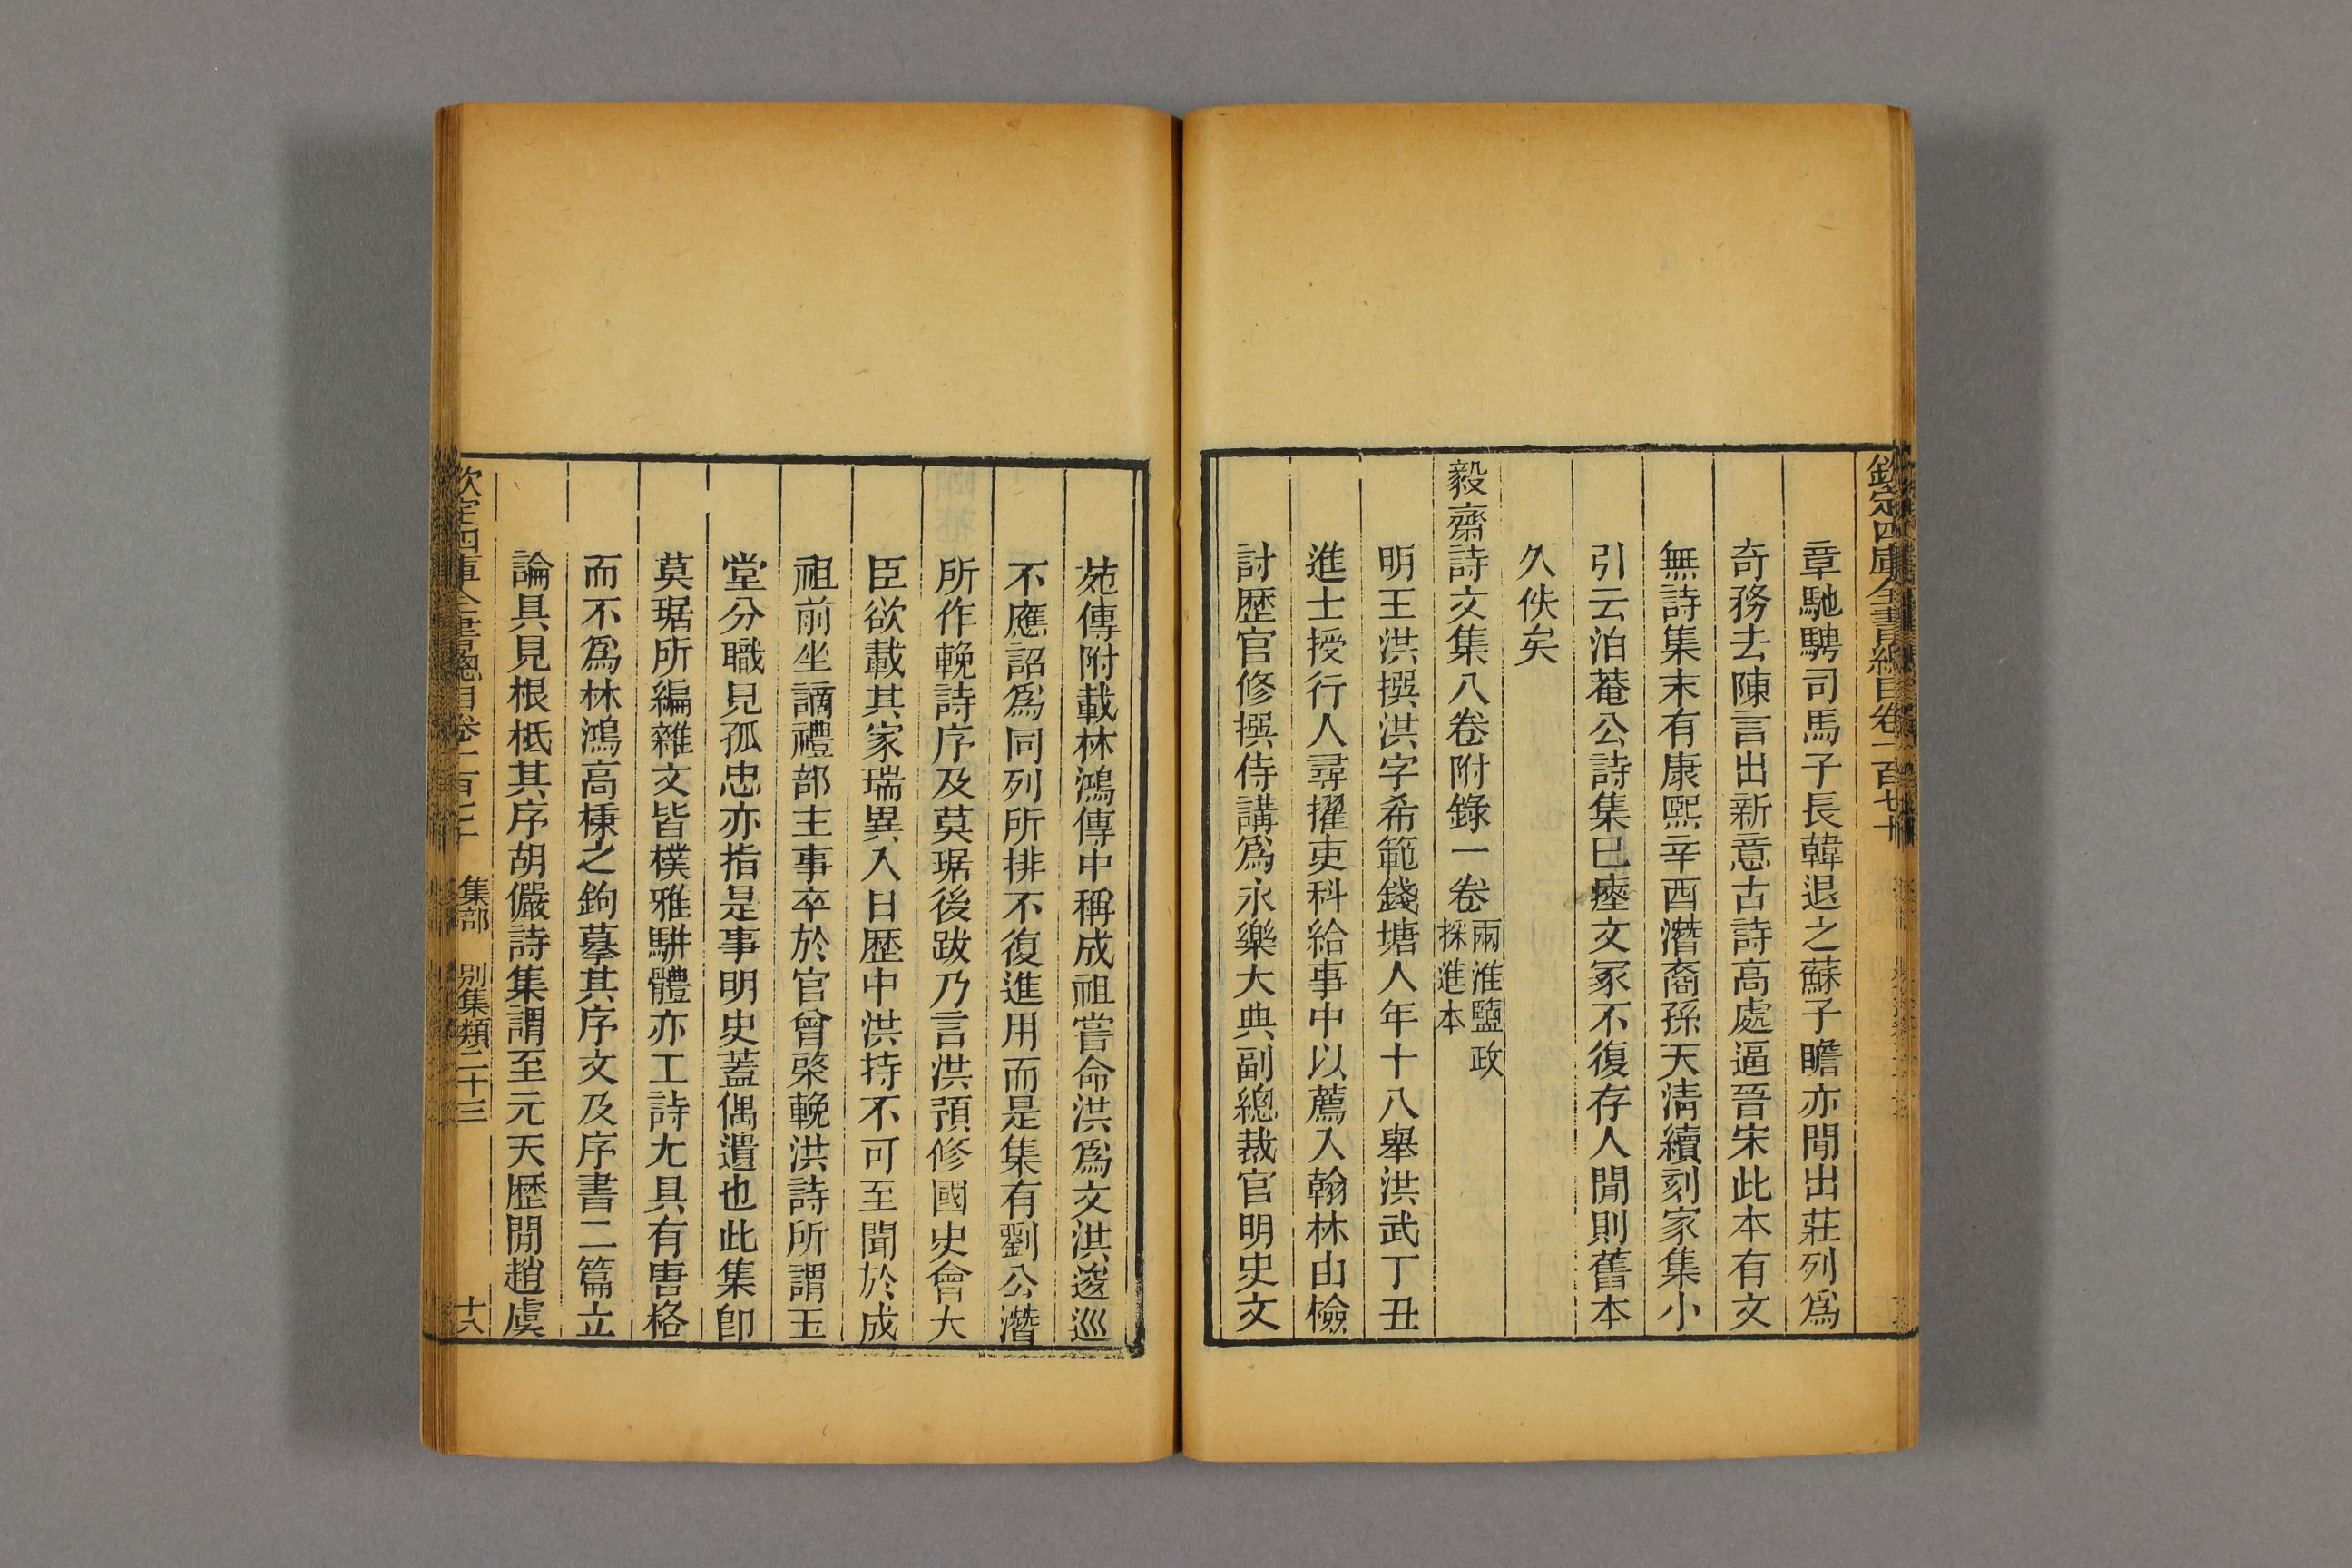 欽定四庫全書總目卷一百七十
章馳騁司馬子長韓退之蘇子瞻亦閒出莊列爲
奇務去陳言出新意古詩高處逼晉宋此本有文
無詩集末有康熙辛酉潛裔孫天淸續刻家集小
引云泊菴公詩集已瘞文冢不復存人閒則舊本
久佚矣
毅齋詩文集八卷附錄一卷兩淮鹽政
採進本
明王洪撰洪字希範錢塘人年十八舉洪武丁丑
進士授行人尋擢吏科給事中以薦入翰林由檢
討歷官修撰侍講爲永樂大典副總裁官明史文
苑傳附載林鴻傳中稱成祖嘗命洪爲文洪逡巡
不應詔爲同列所排不復進用而是集有劉公潛
所作輓詩序及莫琚後跋乃言洪預修國史會大
臣欲載其家瑞異入日歷中洪持不可至聞於成
祖前坐謫禮部主事卒於官曾棨輓洪詩所謂玉
堂分職見孤忠亦指是事明史蓋偶遺也此集卽
莫琚所編雜文皆樸雅駢體亦工詩尤具有唐格
而不爲林鴻高棅之鉤摹其序文及序書二篇立
論具見根柢其序胡儼詩集謂至元天歷閒趙虞
欽定四庫全書總目卷一百七十 集部 別集類二十三 十六